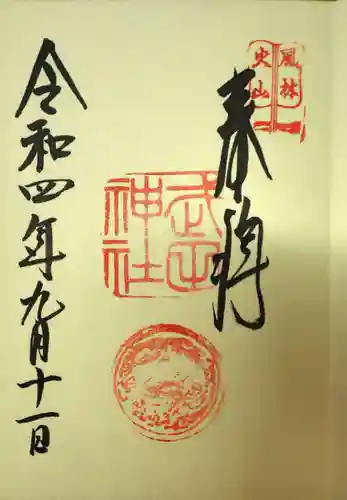 風林
火山
奉拝
武田
神社
令和四年九月十一日